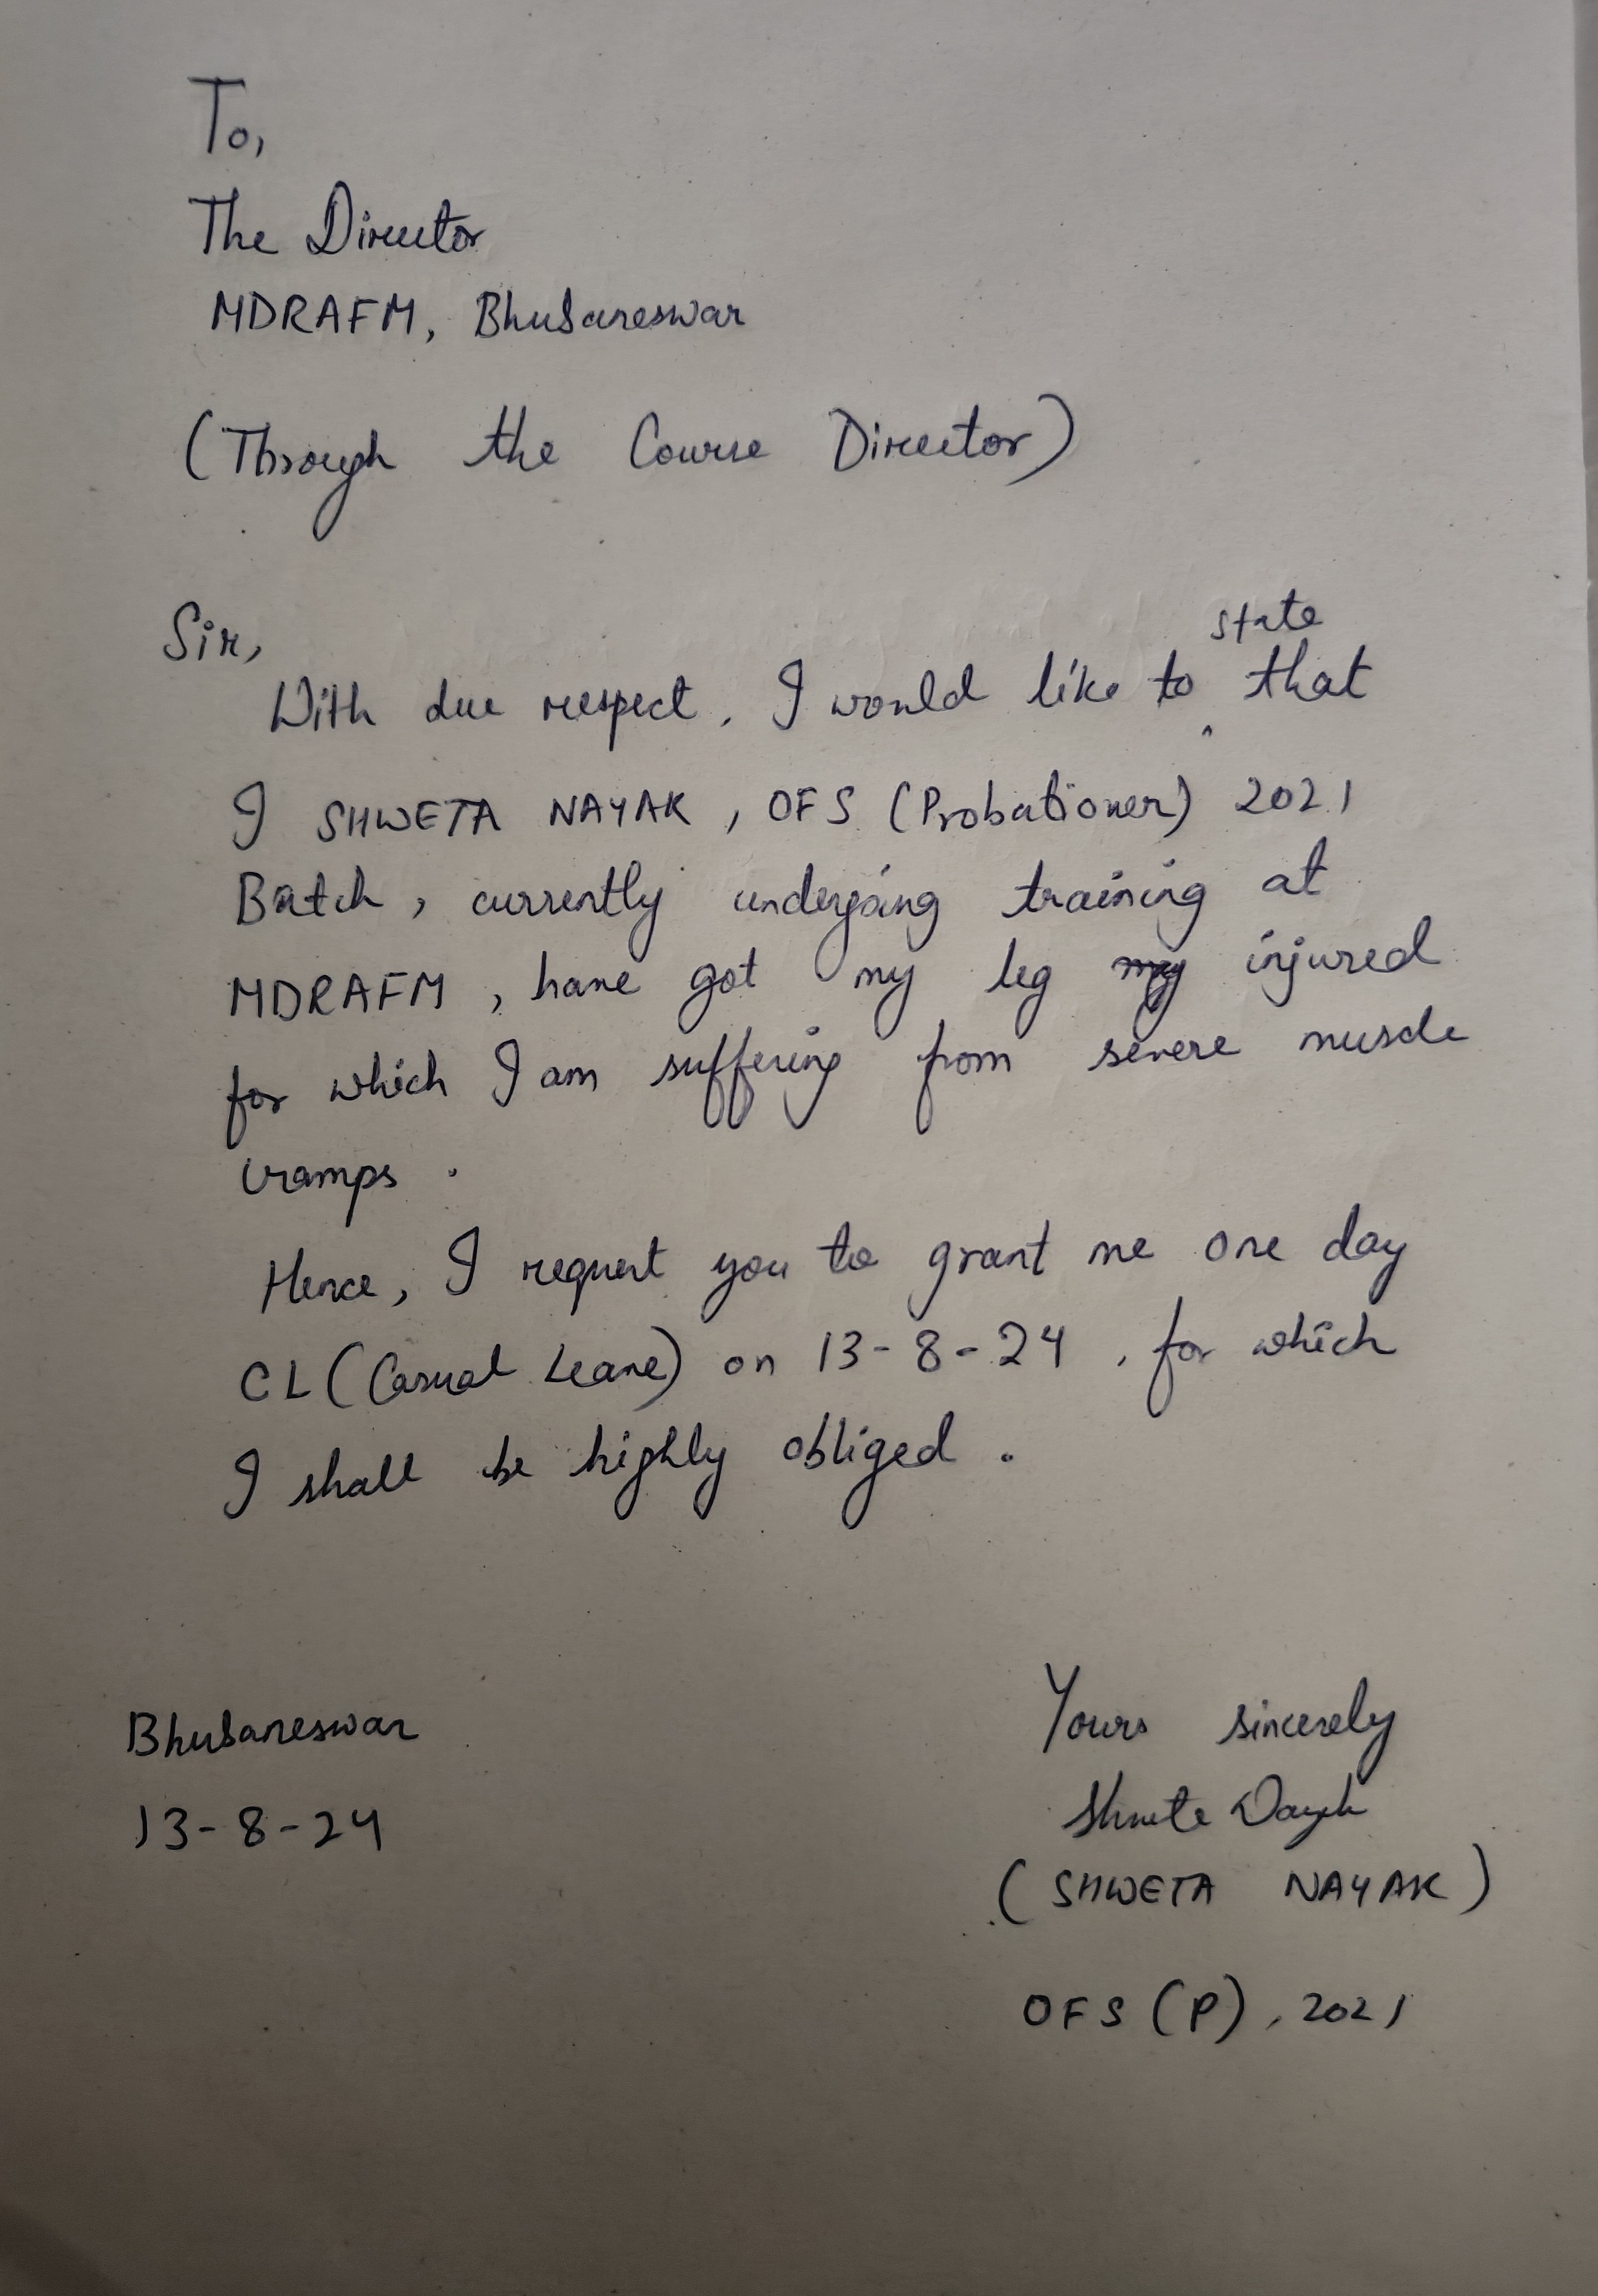 To,
The Director
MDRAFM, Bhubaneswar
(Through the Course Director)
Sir,
With due respect, I would like to state that
I SHWETA NAYAK, OFS (Probationer) 2021
Batch, currently undergoing training at
MDRAFM, have got my leg my injured
for which I am suffering from severe muscle
cramps.
Hence, I request you to grant me one day
CL (Casual Leave) on 13-8-24, for which
I shall be highly obliged.
Bhubaneswar
13-8-24
Yours sincerely
Shweta Nayak
(SHWETA NAYAK)
OFS (P), 2021